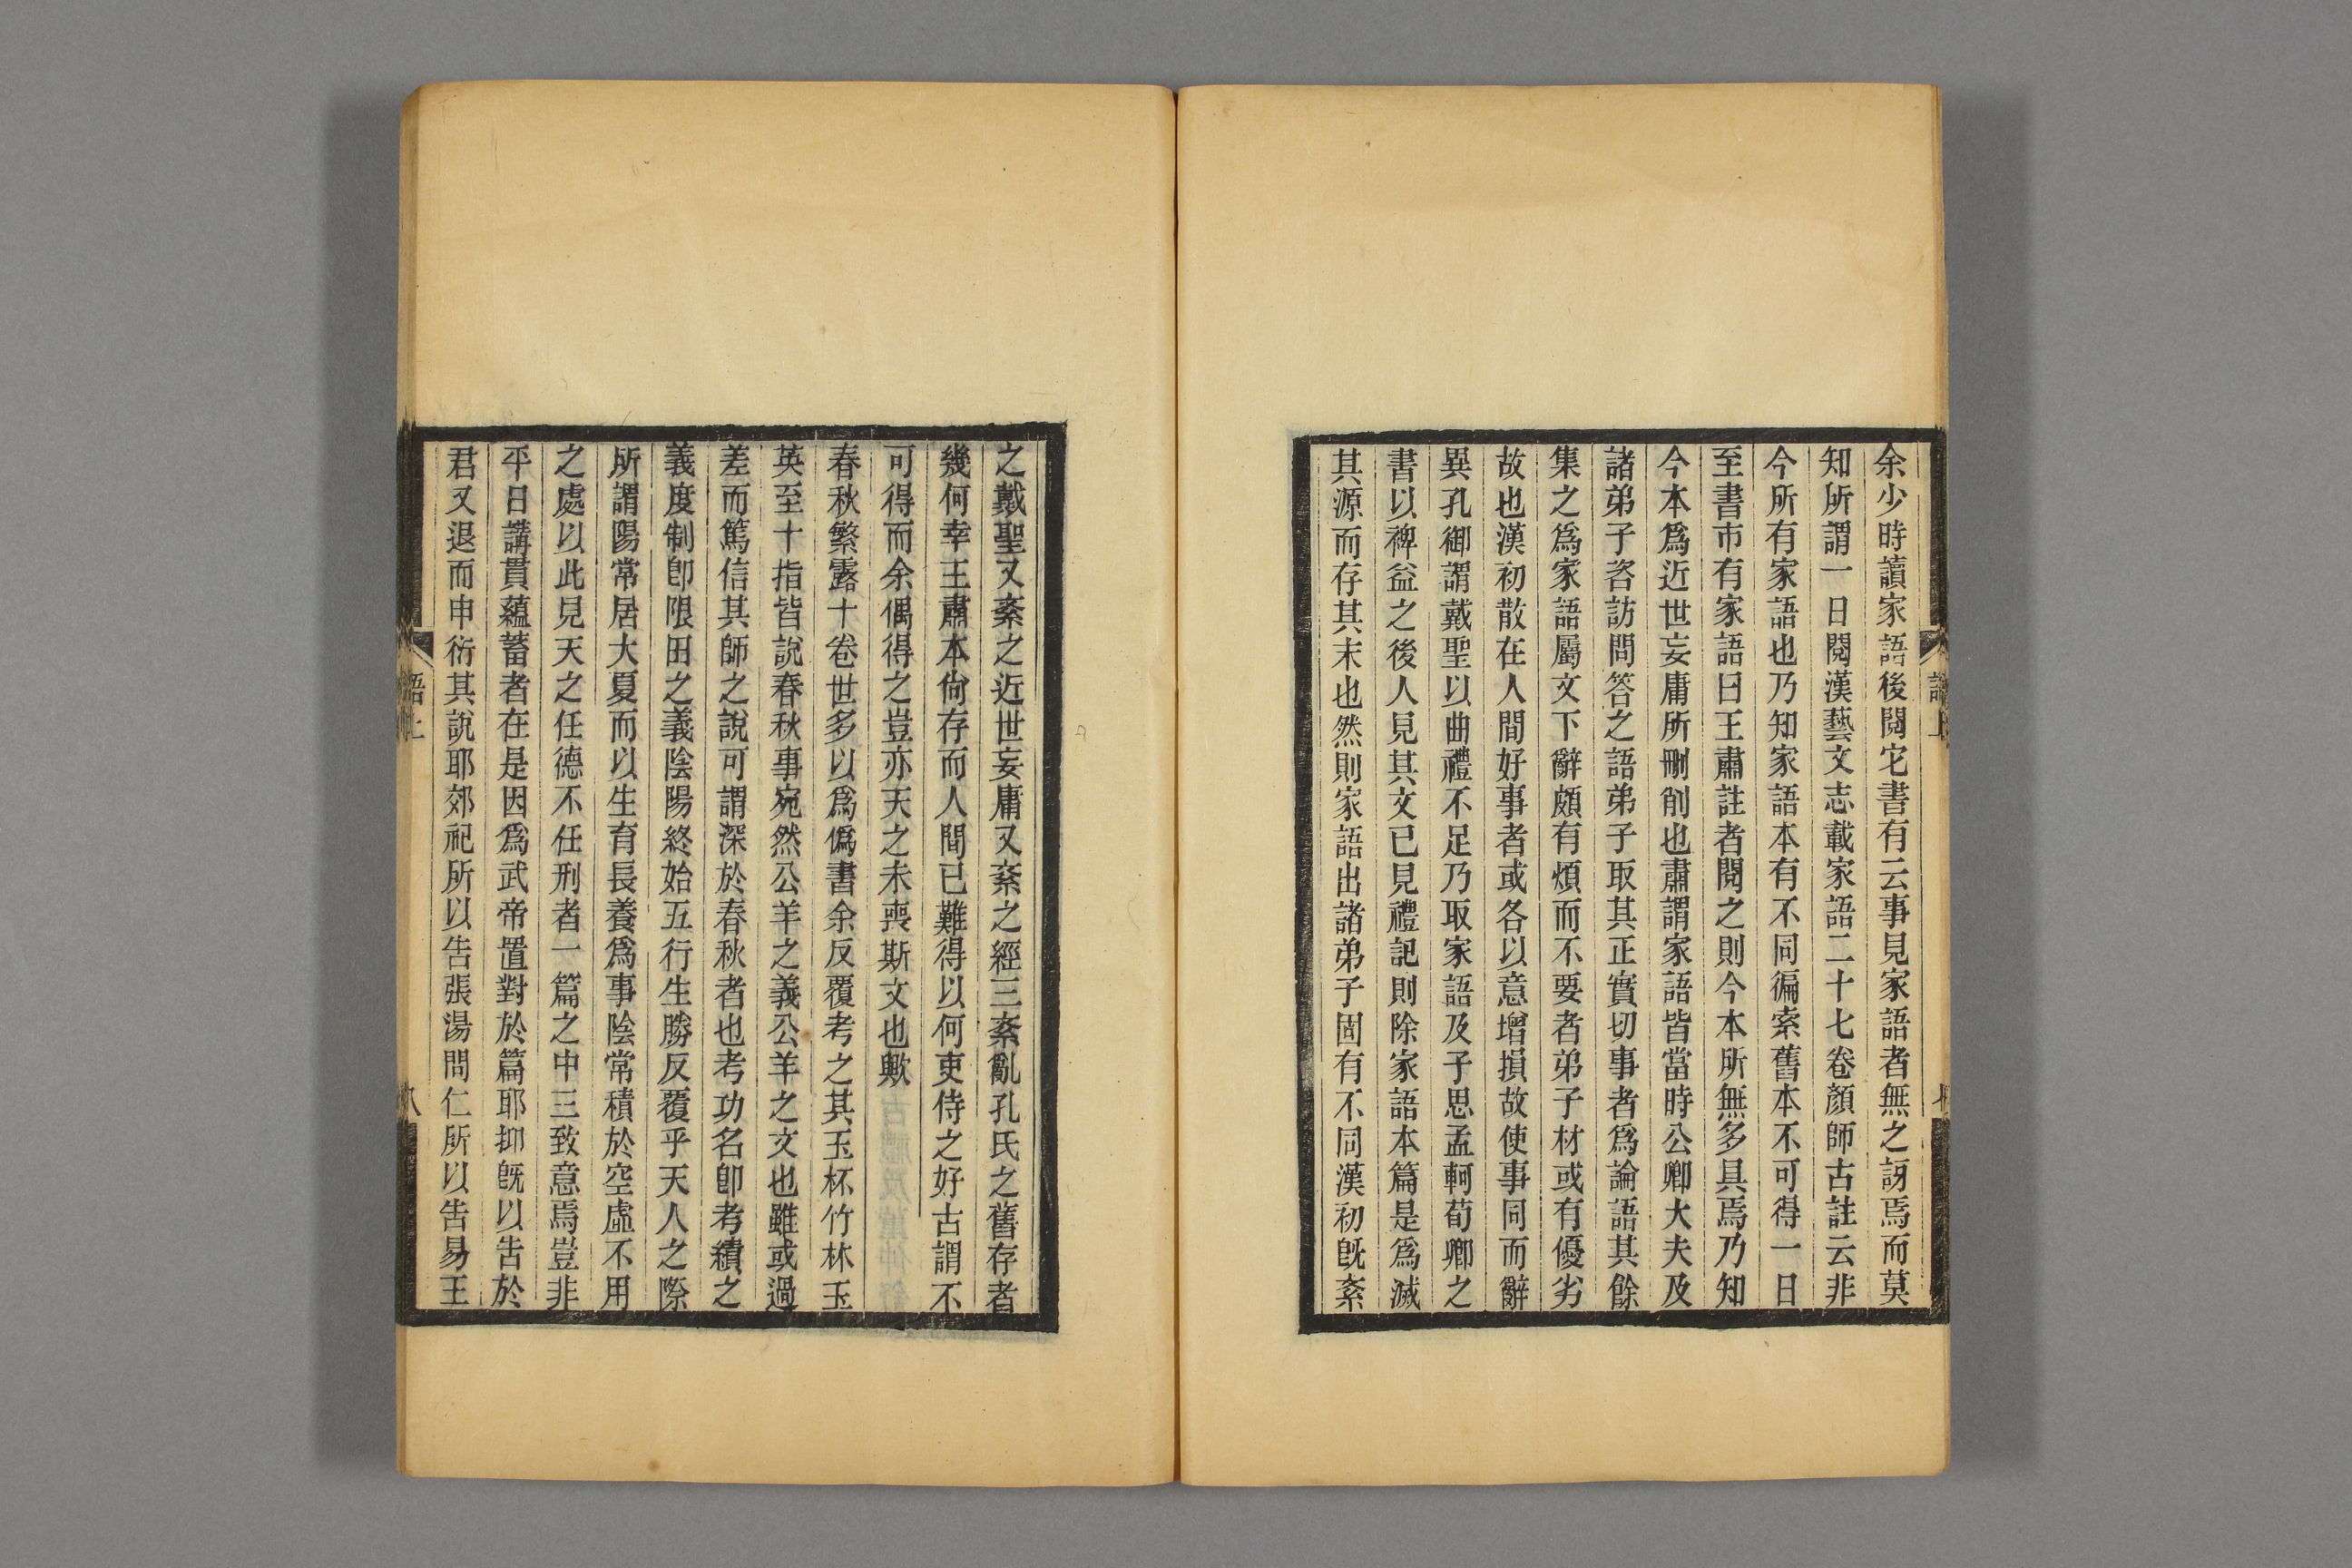 余少時讀家語後閱它書有云事見家語者無之訝焉而莫
知所謂一日閱漢藝文志載家語二十七卷顏師古註云非
今所有家語也乃知家語本有不同徧索舊本不可得一日
至書市有家語曰王肅註者閱之則今本所無多具焉乃知
今本爲近世妄庸所刪削也肅謂家語皆當時公卿大夫及
諸弟子咨訪問答之語弟子取其正實切事者爲論語其餘
集之爲家語屬文下辭頗有煩而不要者弟子材或有優劣
故也漢初散在人間好事者或各以意增損故使事同而辭
異孔御謂戴聖以曲禮不足乃取家語及子思孟軻荀卿之
書以裨益之後人見其文已見禮記則除家語本篇是爲滅
其源而存其末也然則家語出諸弟子固有不同漢初旣紊
語上
之戴聖又紊之近世妄庸又紊之經三紊亂孔氏之舊存者
幾何幸王肅本尙存而人間已難得以何吏侍之好古謂不
可得而余偶得之豈亦天之未喪斯文也歟
春秋繁露十卷世多以爲僞書余反覆考之其玉杯竹林玉
英至十指皆說春秋事宛然公羊之義公羊之文也雖或過
差而篤信其師之說可謂深於春秋者也考功名卽考績之
義度制卽限田之義陰陽終始五行生勝反覆乎天人之際
所謂陽常居大夏而以生育長養爲事陰常積於空虛不用
之處以此見天之任德不任刑者一篇之中三致意焉豈非
平日講貫蘊蓄者在是因爲武帝置對於篇耶抑旣以告於
君又退而申衍其說耶郊祀所以告張湯問仁所以告易王
語上
八